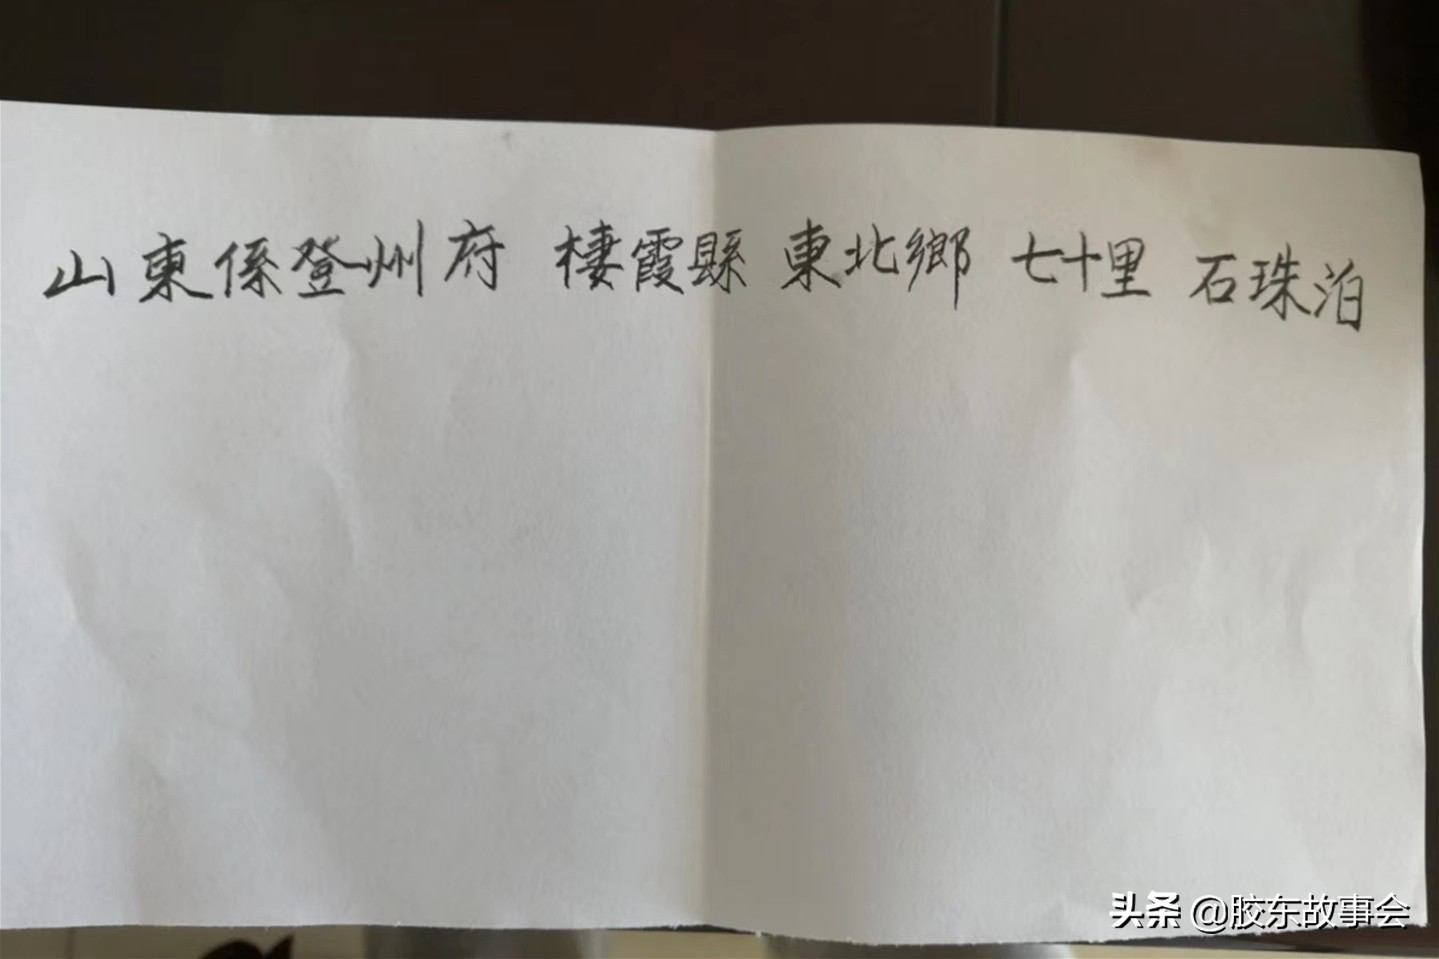 山東係登州府 棲霞縣 東北鄉 七十里 石珠泊
头条 @胶东故事会